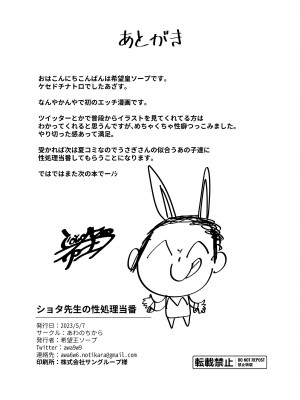 あとがき
おはこんにちこんばんは希望皇ソープです。
ケセドチナトロでしたあざす。
なんやかんやで初のエッチ漫画です。
ツイッターとかで普段からイラストを見てくれてる方は
わかってくれてると思うんですが、めちゃくちゃ性癖つっこみました。
やり切った感あって満足。
受かれば次は夏コミなのでうさぎさんの似合うあの子達に
性処理当番してもらうことになります。
ではではまた次の本でーﾉｼ
ショタ先生の性処理当番
発行日：2023/5/7
サークル：あわのちから
発行者：希望王ソープ
Twitter：awa9w9
連絡先：awa6w6.notikara@gmail.com
印刷所：株式会社サングループ様
転載禁止
DO NOT REPOST
禁止转载